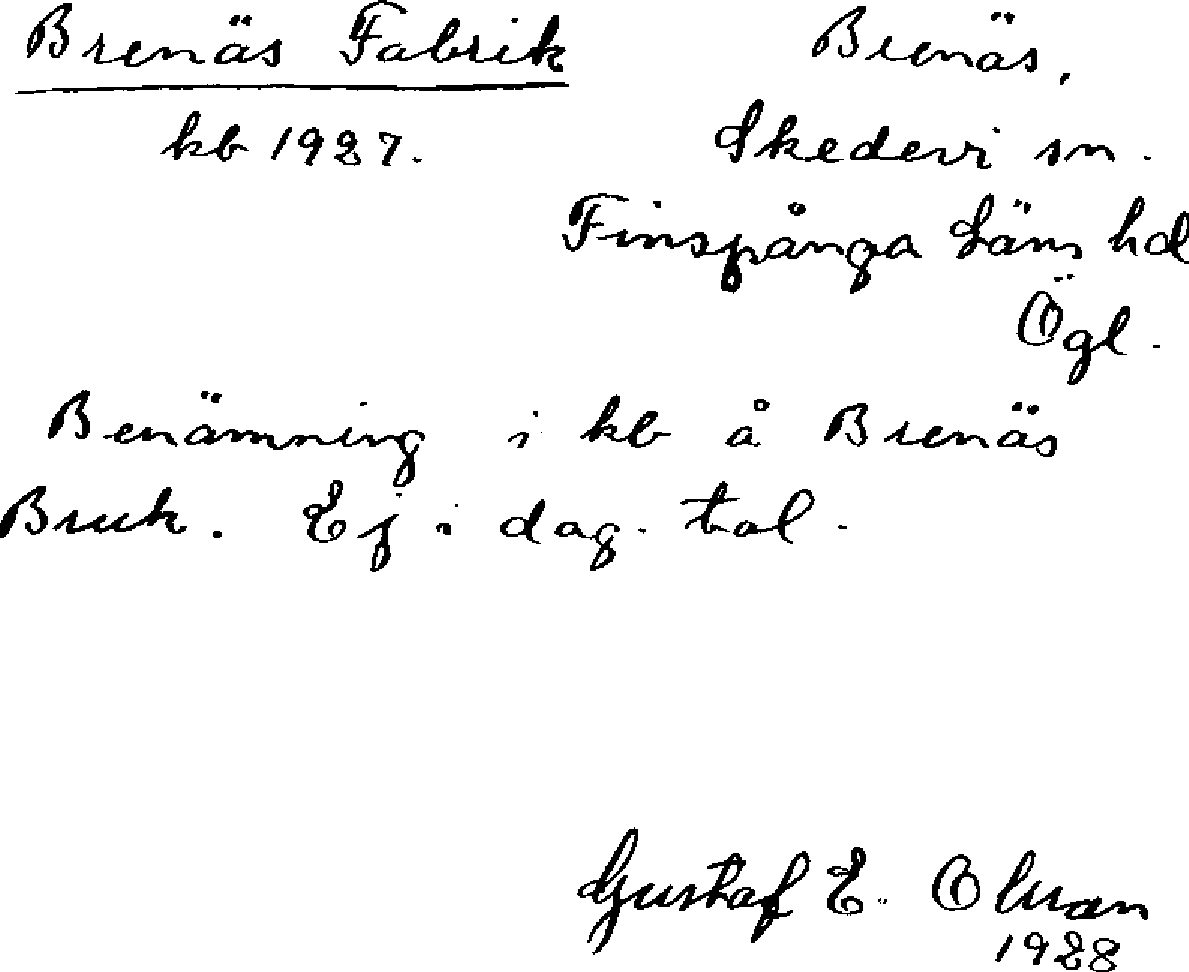 Brenäs Fabrik
kb 1927.
Brenäs,
Skedevi sn.
Finspånga Läns hd
Ögl.
Benämning i kb å Brenäs
Bruk. Ej i dag. tal.
Gustaf E. Olsson
1928